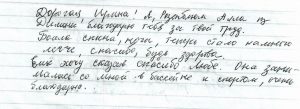 Дорогая Ирина! Я, Розенблюм Алла из
благодарю тебя за твой труд.
Болела спина, ноги, теперь стало намного
легче спасибо, будь здорова.
Ещё хочу сказать спасибо Любе. Она зани-
малась со мной в бассейне и спортом, очень
благодарна.